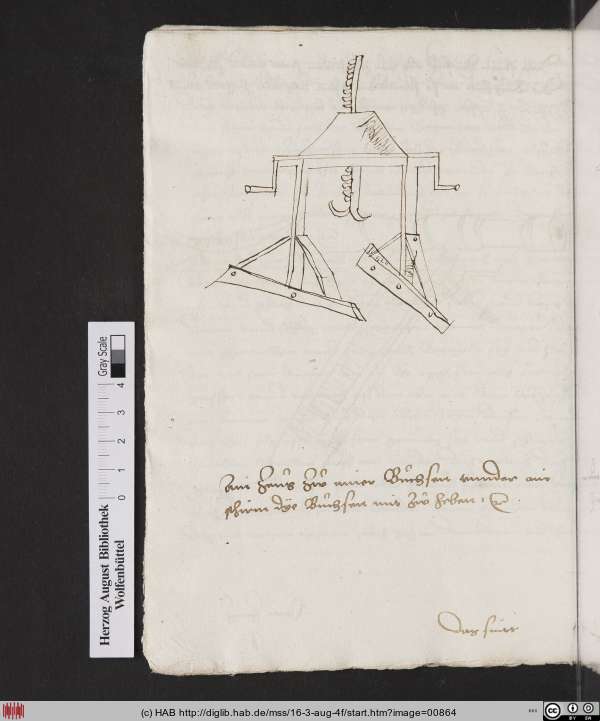 Ain zeug zu ainer Büchsen vnnder ain
schirm dye Büchsen mit zu heben
Das sint
Herzog August Bibliothek
Wolfenbüttel
Gray Scale
0 1 2 3 4
(c) HAB http://diglib.hab.de/mss/16-3-aug-4f/start.htm?image=00864
CC BY SA